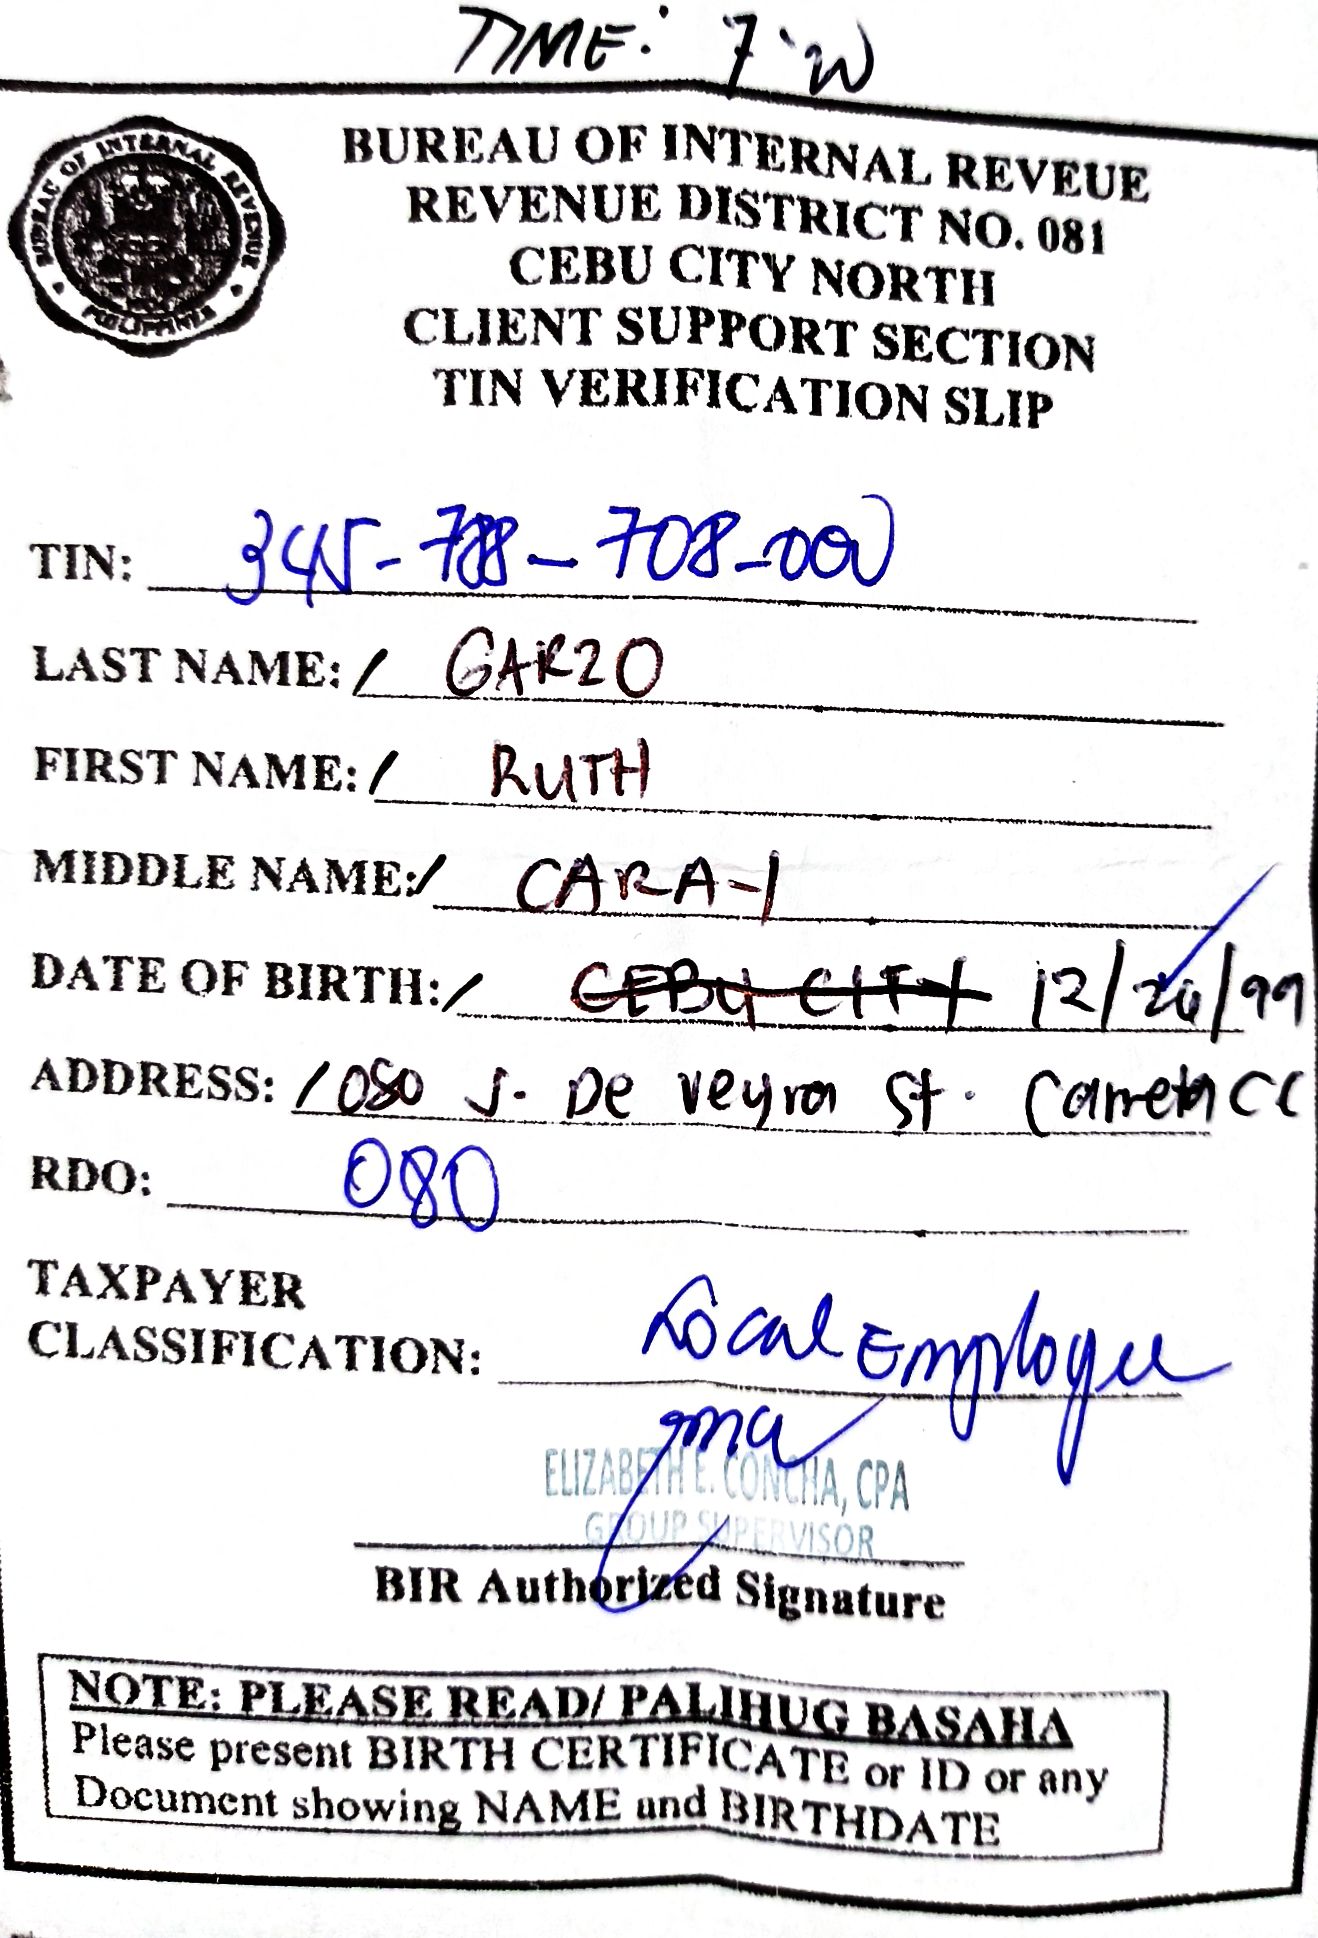 TIME: 7
BUREAU OF INTERNAL REVENUE
PHILIPPINES
BUREAU OF INTERNAL REVEUE
REVENUE DISTRICT NO. 081
CEBU CITY NORTH
CLIENT SUPPORT SECTION
TIN VERIFICATION SLIP
TIN: 345-788-708-000
LAST NAME: / GARZO
FIRST NAME: / RUTH
MIDDLE NAME: / CARA-1
DATE OF BIRTH: / CEBU CITY 12/26/99
ADDRESS: / 080 J. De Veyra St. Carreta CC
RDO: 080
TAXPAYER
CLASSIFICATION: Local Employee
ELIZABETH E. CONCHA, CPA
GROUP SUPERVISOR
BIR Authorized Signature
NOTE: PLEASE READ/ PALIHUG BASAHA
Please present BIRTH CERTIFICATE or ID or any
Document showing NAME and BIRTHDATE